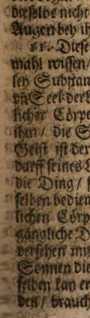 dieselbe nicht
Augen bey ih
81. Diese
mahl wissen/
ley Substan
un Seel: der L
licher Cörpe
then/ die S
Geist ist der
darff seines L
die Ding/
selben bedien
lichen Cörp
gängliche D
versehen mi
Sonnen die
selben kan er
den/ brauch